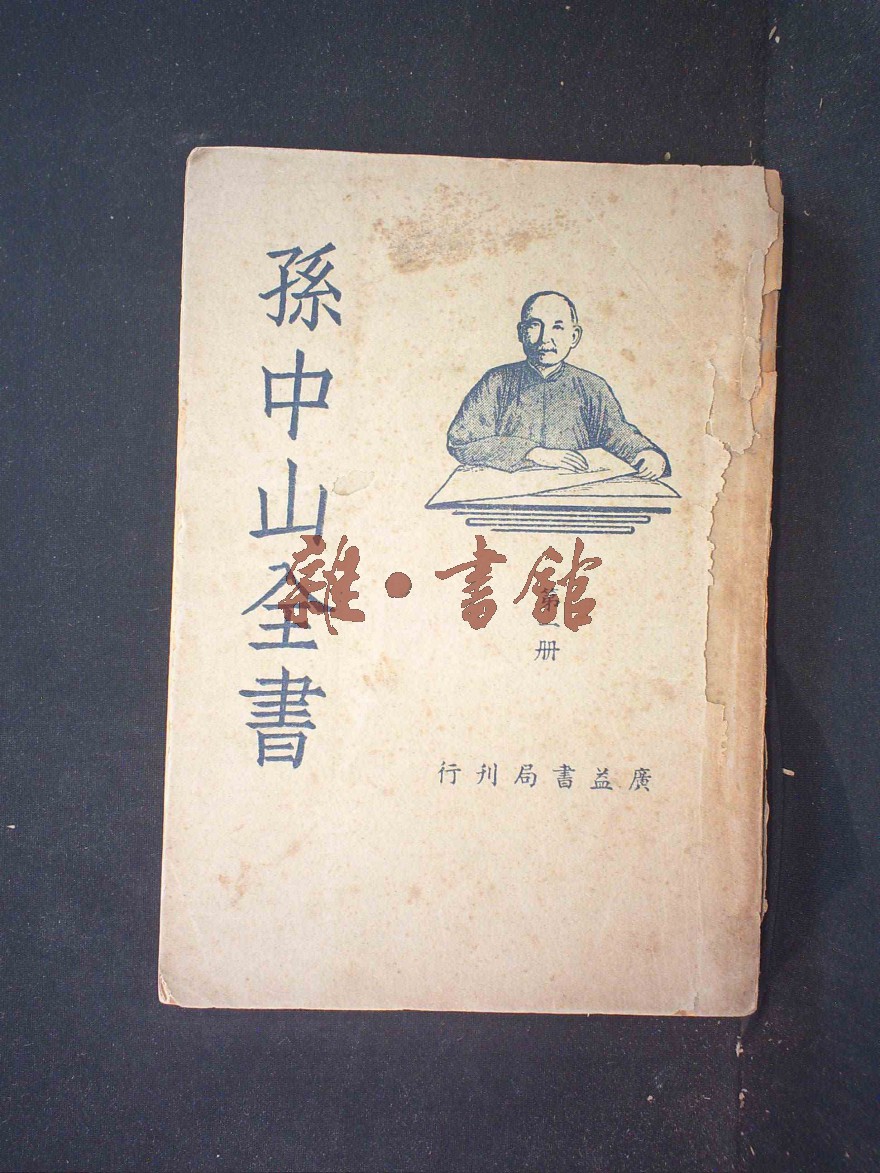 孫中山全書
第 册
廣益書局刊行
雜·書館